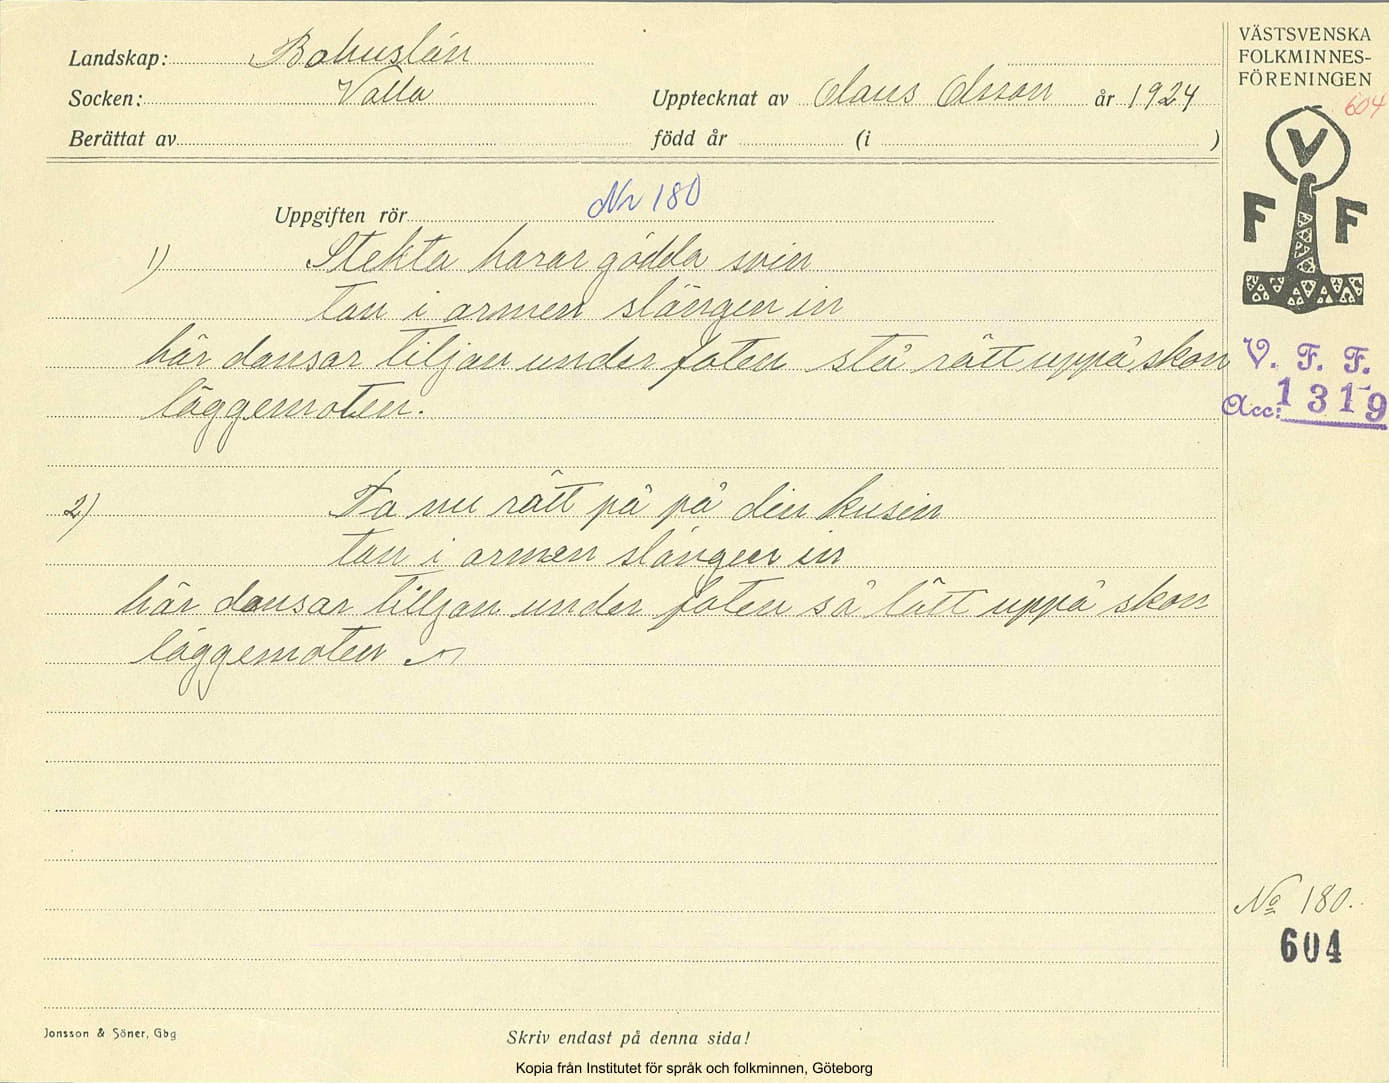 Landskap: Bohuslän
Socken: Valla
Upptecknat av Claus Olsson år 1924
Berättat av
född år (i )
Uppgiften rör Nr 180
1) Stekta harar gödda svin
tau i armen slängen in
här dansar tiljan under foten stå rätt uppå skon
läggemoten.
2) Ta nu rätt på på din kusin
tau i armen slängen in
här dansar tilljan under foten så lätt uppå skon
läggemoten
VÄSTSVENSKA
FOLKMINNES-
FÖRENINGEN
604
V
F F
V. F. F.
Acc: 1319
No 180.
604
Jonsson & Söner, Gbg
Skriv endast på denna sida!
Kopia från Institutet för språk och folkminnen, Göteborg